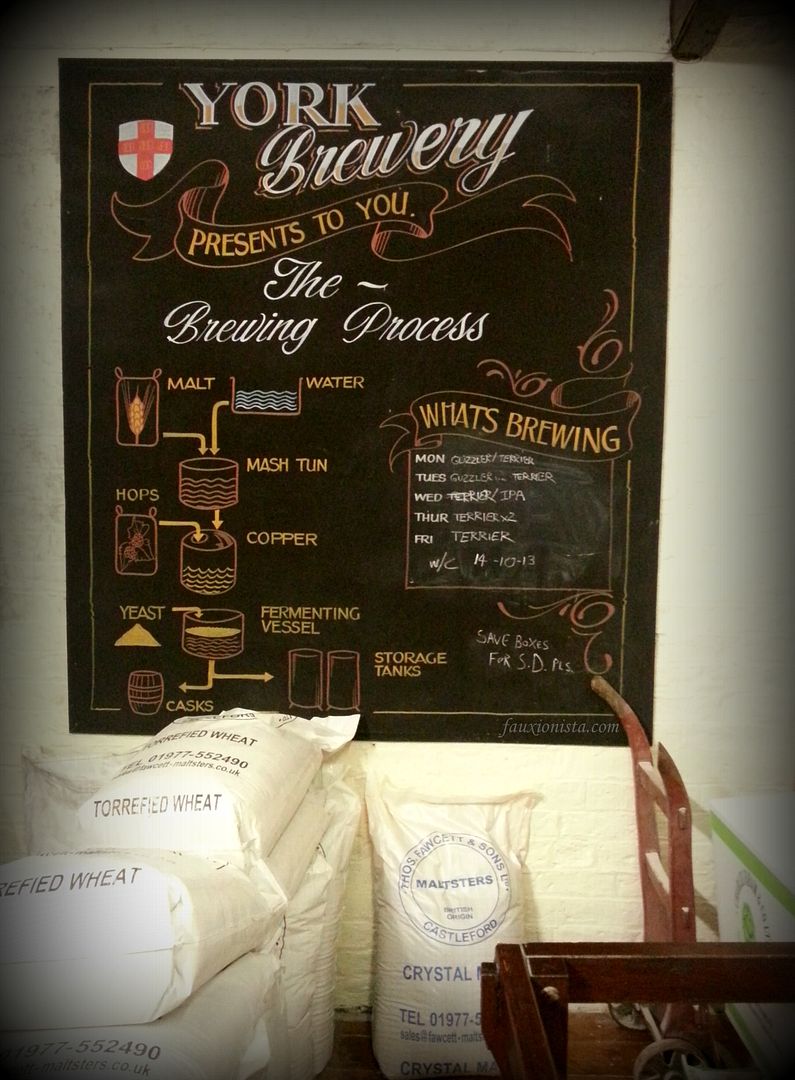 YORK
Brewery
PRESENTS TO YOU.
The ~
Brewing Process
MALT
WATER
MASH TUN
HOPS
COPPER
YEAST
FERMENTING
VESSEL
STORAGE
TANKS
CASKS
WHATS BREWING
MON GUZZLER/TERRIER
TUES GUZZLER TERRIER
WED TERRIER/IPA
THUR TERRIER x2
FRI TERRIER
W/C 14-10-13
SAVE BOXES
FOR S.D. PLS.
fauxionista.com
TORREFIED WHEAT
TEL 01977-552490
@fawcett-maltsters.co.uk
TORREFIED WHEAT
REFIED WHEAT
01977-552490
fawcett-maltsters.co.uk
THOS. FAWCETT & SONS LTD.
MALTSTERS
BRITISH
ORIGIN
CASTLEFORD
CRYSTAL M
TEL 01977-5
sales@fawcett-malts
CRYSTAL MA